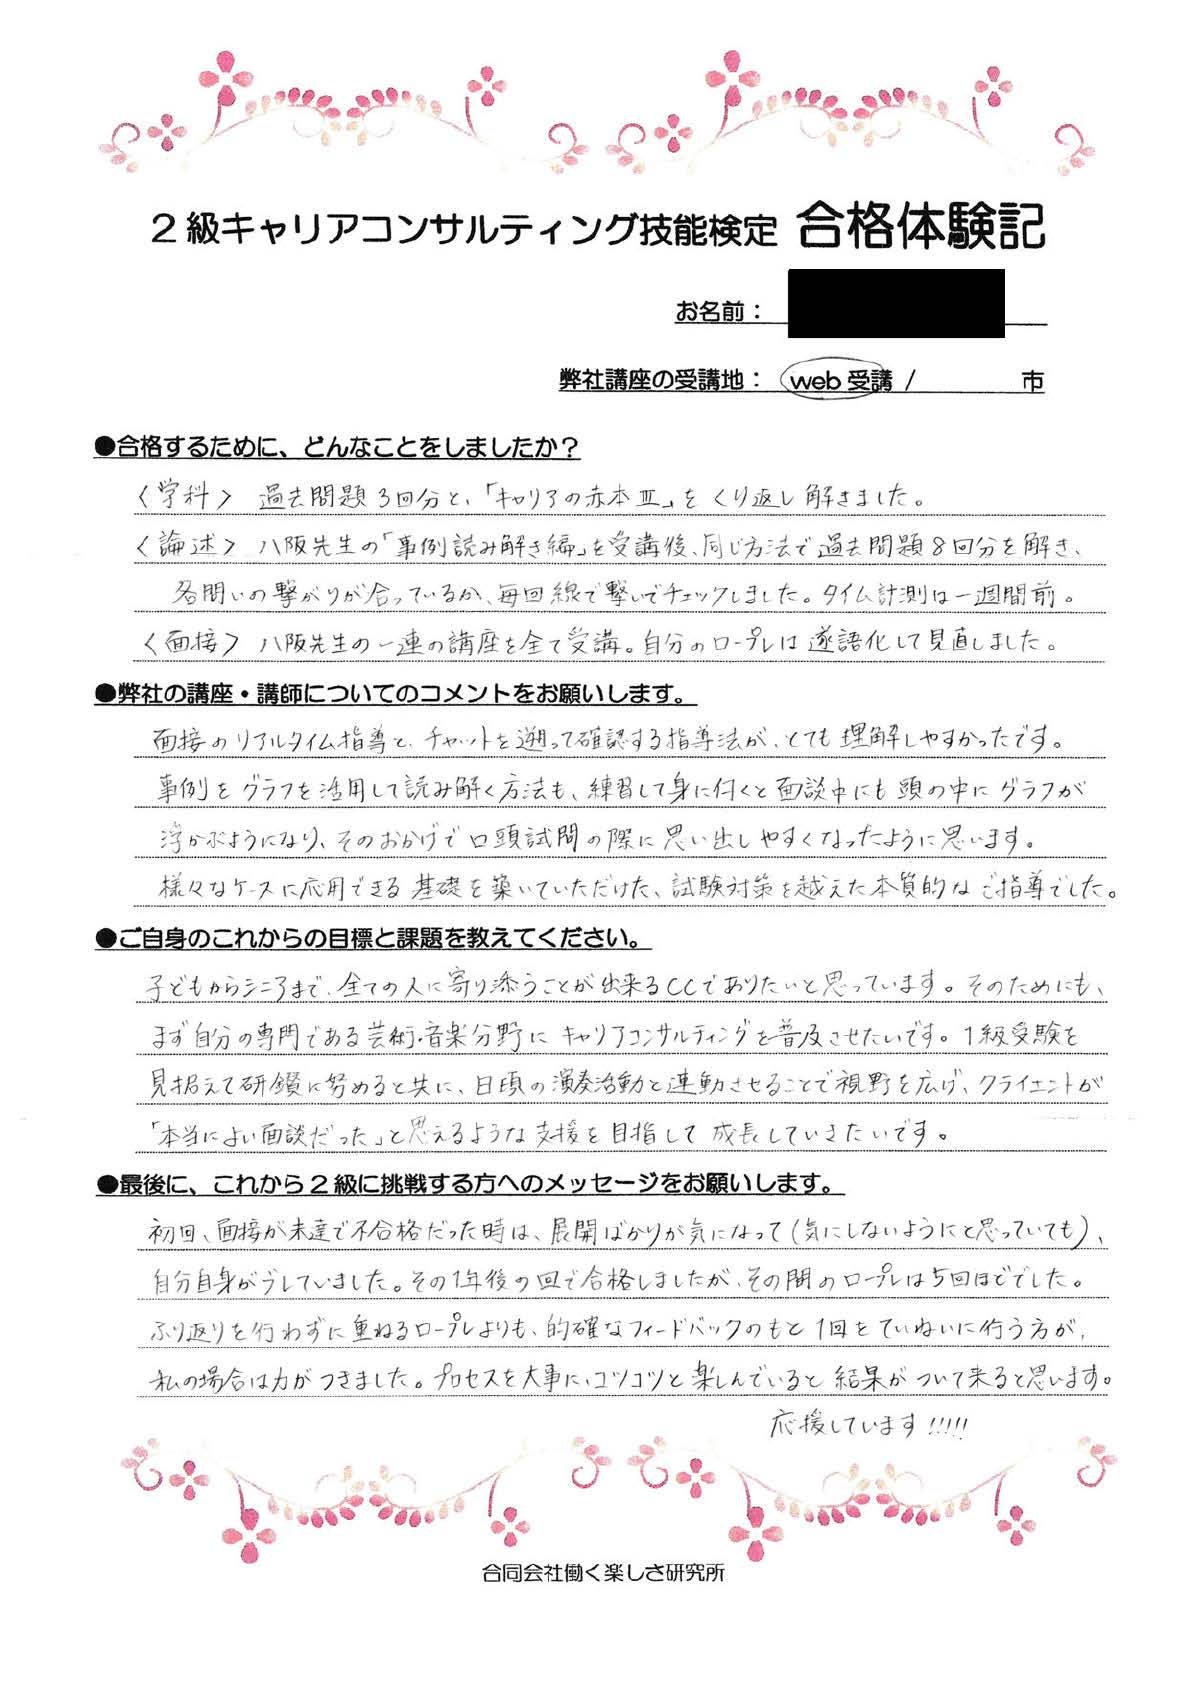 2級キャリアコンサルティング技能検定 合格体験記
お名前：
弊社講座の受講地： web受講 / 市
●合格するために、どんなことをしましたか？
〈学科〉 過去問題3回分と、「キャリアの赤本Ⅲ」をくり返し解きました。
〈論述〉 八阪先生の「事例読み解き編」を受講後、同じ方法で過去問題8回分を解き、
各問いの繋がりが合っているか、毎回線で繋いでチェックしました。タイム計測は一週間前。
〈面接〉 八阪先生の一連の講座を全て受講。自分のロープレは逐語化して見直しました。
●弊社の講座・講師についてのコメントをお願いします。
面接のリアルタイム指導と、チャットを遡って確認する指導法が、とても理解しやすかったです。
事例をグラフを活用して読み解く方法も、練習して身に付くと面談中にも頭の中にグラフが
浮かぶようになり、そのおかげで口頭試問の際に思い出しやすくなったように思います。
様々なケースに応用できる基礎を築いていただけた、試験対策を越えた本質的なご指導でした。
●ご自身のこれからの目標と課題を教えてください。
子どもからシニアまで、全ての人に寄り添うことが出来るCCでありたいと思っています。そのためにも、
まず自分の専門である芸術・音楽分野にキャリアコンサルティングを普及させたいです。1級受験を
見据えて研鑽に努めると共に、日頃の演奏活動と連動させることで視野を広げ、クライエントが
「本当によい面談だった」と思えるような支援を目指して成長していきたいです。
●最後に、これから2級に挑戦する方へのメッセージをお願いします。
初回、面接が未達で不合格だった時は、展開ばかりが気になって(気にしないようにと思っていても)、
自分自身がブレていました。その1年後の回で合格しましたが、その間のロープレは5回ほどでした。
ふり返りを行わずに重ねるロープレよりも、的確なフィードバックのもと1回をていねいに行う方が、
私の場合は力がつきました。プロセスを大事に、コツコツと楽しんでいると結果がついて来ると思います。
応援しています!!!!!
合同会社働く楽しさ研究所